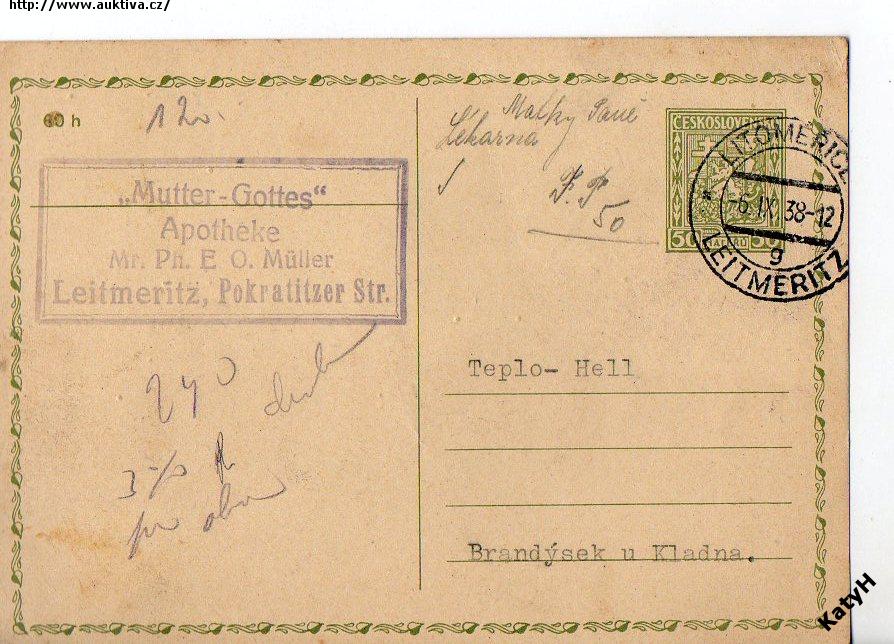 http://www.auktiva.cz/
60 h
120.
Matky Paně
Lékarna
50
ČESKOSLOVENSKO
50 HALÉŘŮ 50
LITOMĚŘICE
-6.IX.38-12
g
LEITMERITZ
„Mutter-Gottes“
Apotheke
Mr. Ph. E. O. Müller
Leitmeritz, Pokratitzer Str.
240
Teplo- Hell
Brandýsek u Kladna.
KatyH